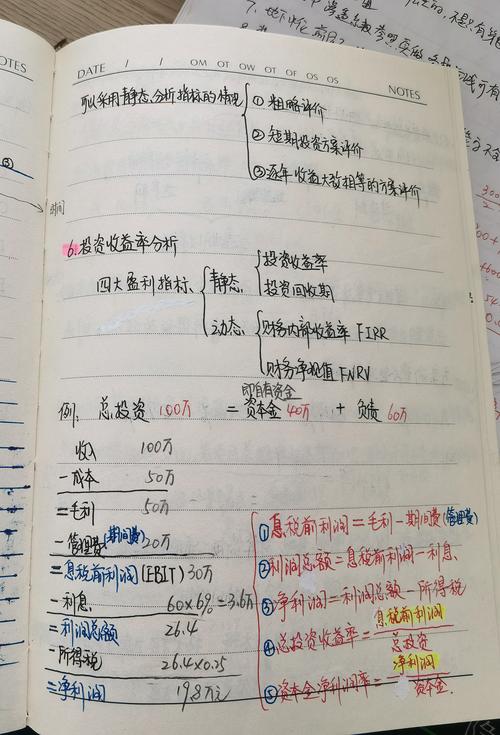 DATE / / OM OT OW OT OF OS OS NOTES
可以采用静态分析指标的情况
① 粗略评价
② 短期投资方案评价
③ 逐年收益大致相等的方案评价
6.投资收益率分析
四大盈利指标
静态
投资收益率
投资回收期
动态
财务内部收益率 FIRR
财务净现值 FNRV
即自有资金
例: 总投资 100万 = 资本金 40万 + 负债 60万
收入 100万
-成本 50万
=毛利 50万
-管理费(期间费) 20万
=息税前利润(EBIT) 30万
-利息 60×6%=3.6万
=利润总额 26.4
-所得税 26.4×0.25
=净利润 19.8万元
①息税前利润=毛利-期间费(管理费)
②利润总额=息税前利润-利息.
③净利润=利润总额-所得税
④总投资收益率=息税前利润
总投资
⑤资本金净利润率=净利润
资本金.
NOTES
期间
7.地下